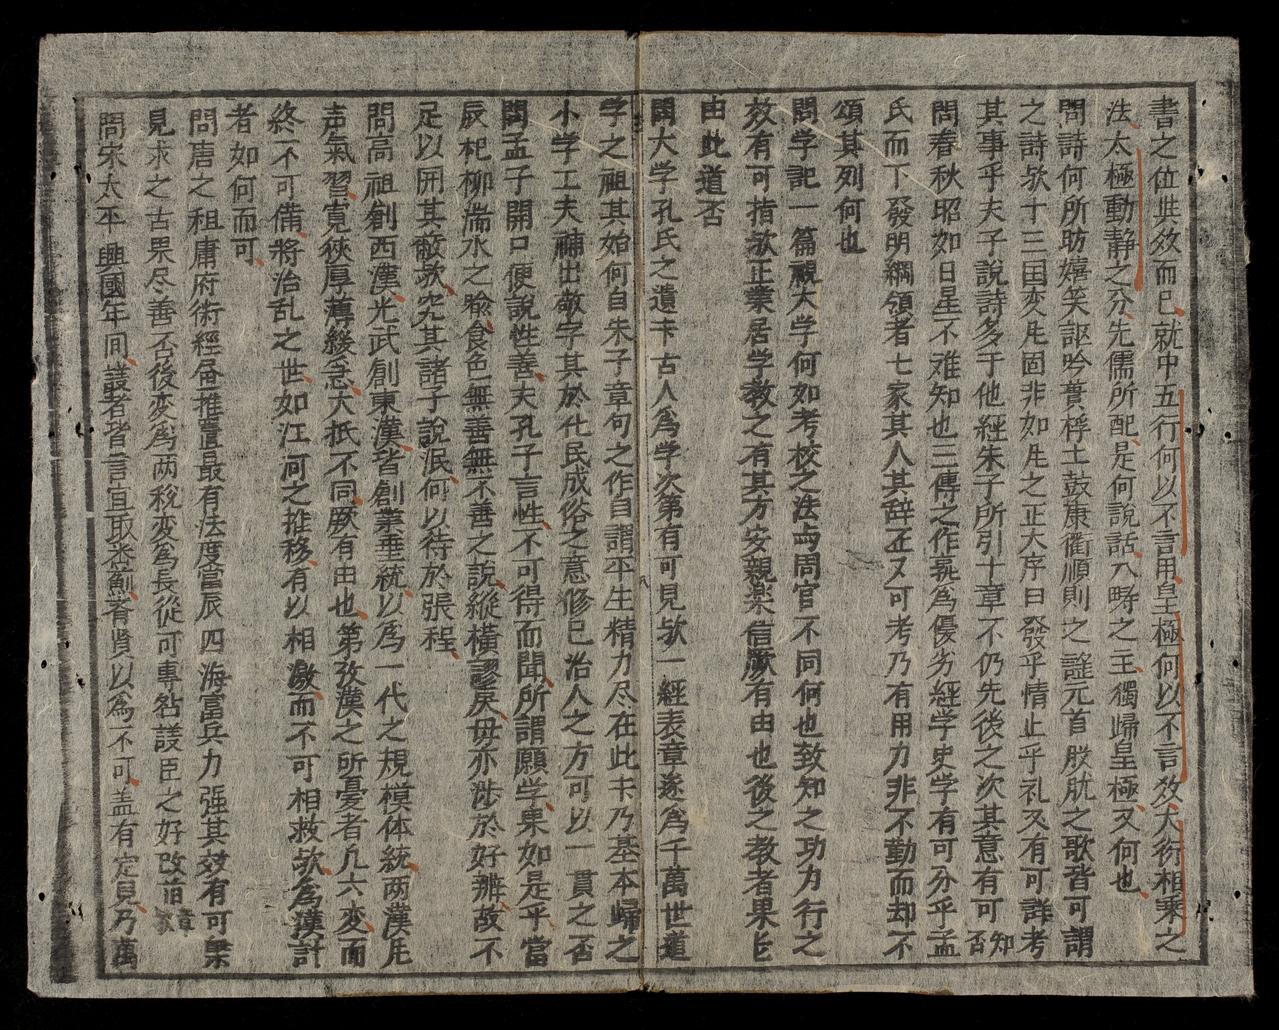 書之位其效而已就中五行何以不言用皇極何以不言效大衍相乘之
法太極動靜之分先儒所配是何說話八畴之主獨歸皇極又何也
問詩何所昉嬉笑謳吟蕢桴土鼓康衢順則之謠元首股肱之歌皆可謂
之詩欤十三国变凡固非如凡之正大序曰發乎情止乎礼又有可詳考
其事乎夫子說詩多于他經朱子所引十章不仍先後之次其意有可知否
問春秋昭如日星不难知也三傳之作孰為優劣經学史学有可分乎孟
氏而下發明綱領者七家其人其辞正又可考乃有用力非不勤而却不
頌其列何也
問学記一篇視大学何如考校之法与周官不同何也致知之功力行之
效有可指欤正業居学教之有其方安親楽信厥有由也後之教者果
由此道否
問大学孔氏之遺古人為学次第有可見欤一經表章遂為千萬世道
学之祖其始何自朱子章句之作自謂平生精力尽在此乃基本歸之
小学工夫補出敬字其於化民成俗之意修己治人之方可以一貫之否
問孟子開口便說性善夫孔子言性不可得而聞所謂願学果如是乎當
辰杞柳湍水之喻食色無善無不善之說縱橫謬戾毋亦涉於好辨故不
足以開其蔽欤究其諸子說泯何以待於張程
問高祖創西漢光武創東漢皆創業垂統以為一代之規模体統两漢凡
声氣習寬狹厚薄緩急大抵不同厥有由也第攷漢之所憂者凡六变而
終不可備將治乱之世如江河之推移有以相激而不可相救欤為漢計
者如何而可
問唐之租庸府術經畵推置最有法度當辰四海富兵力强其效有可槩
見求之古果尽善否後变為两税变為長從可專咎議臣之好改前章欤
問宋太平興國年间議者皆言宜取燕薊者贤以為不可盖有定見乃萬